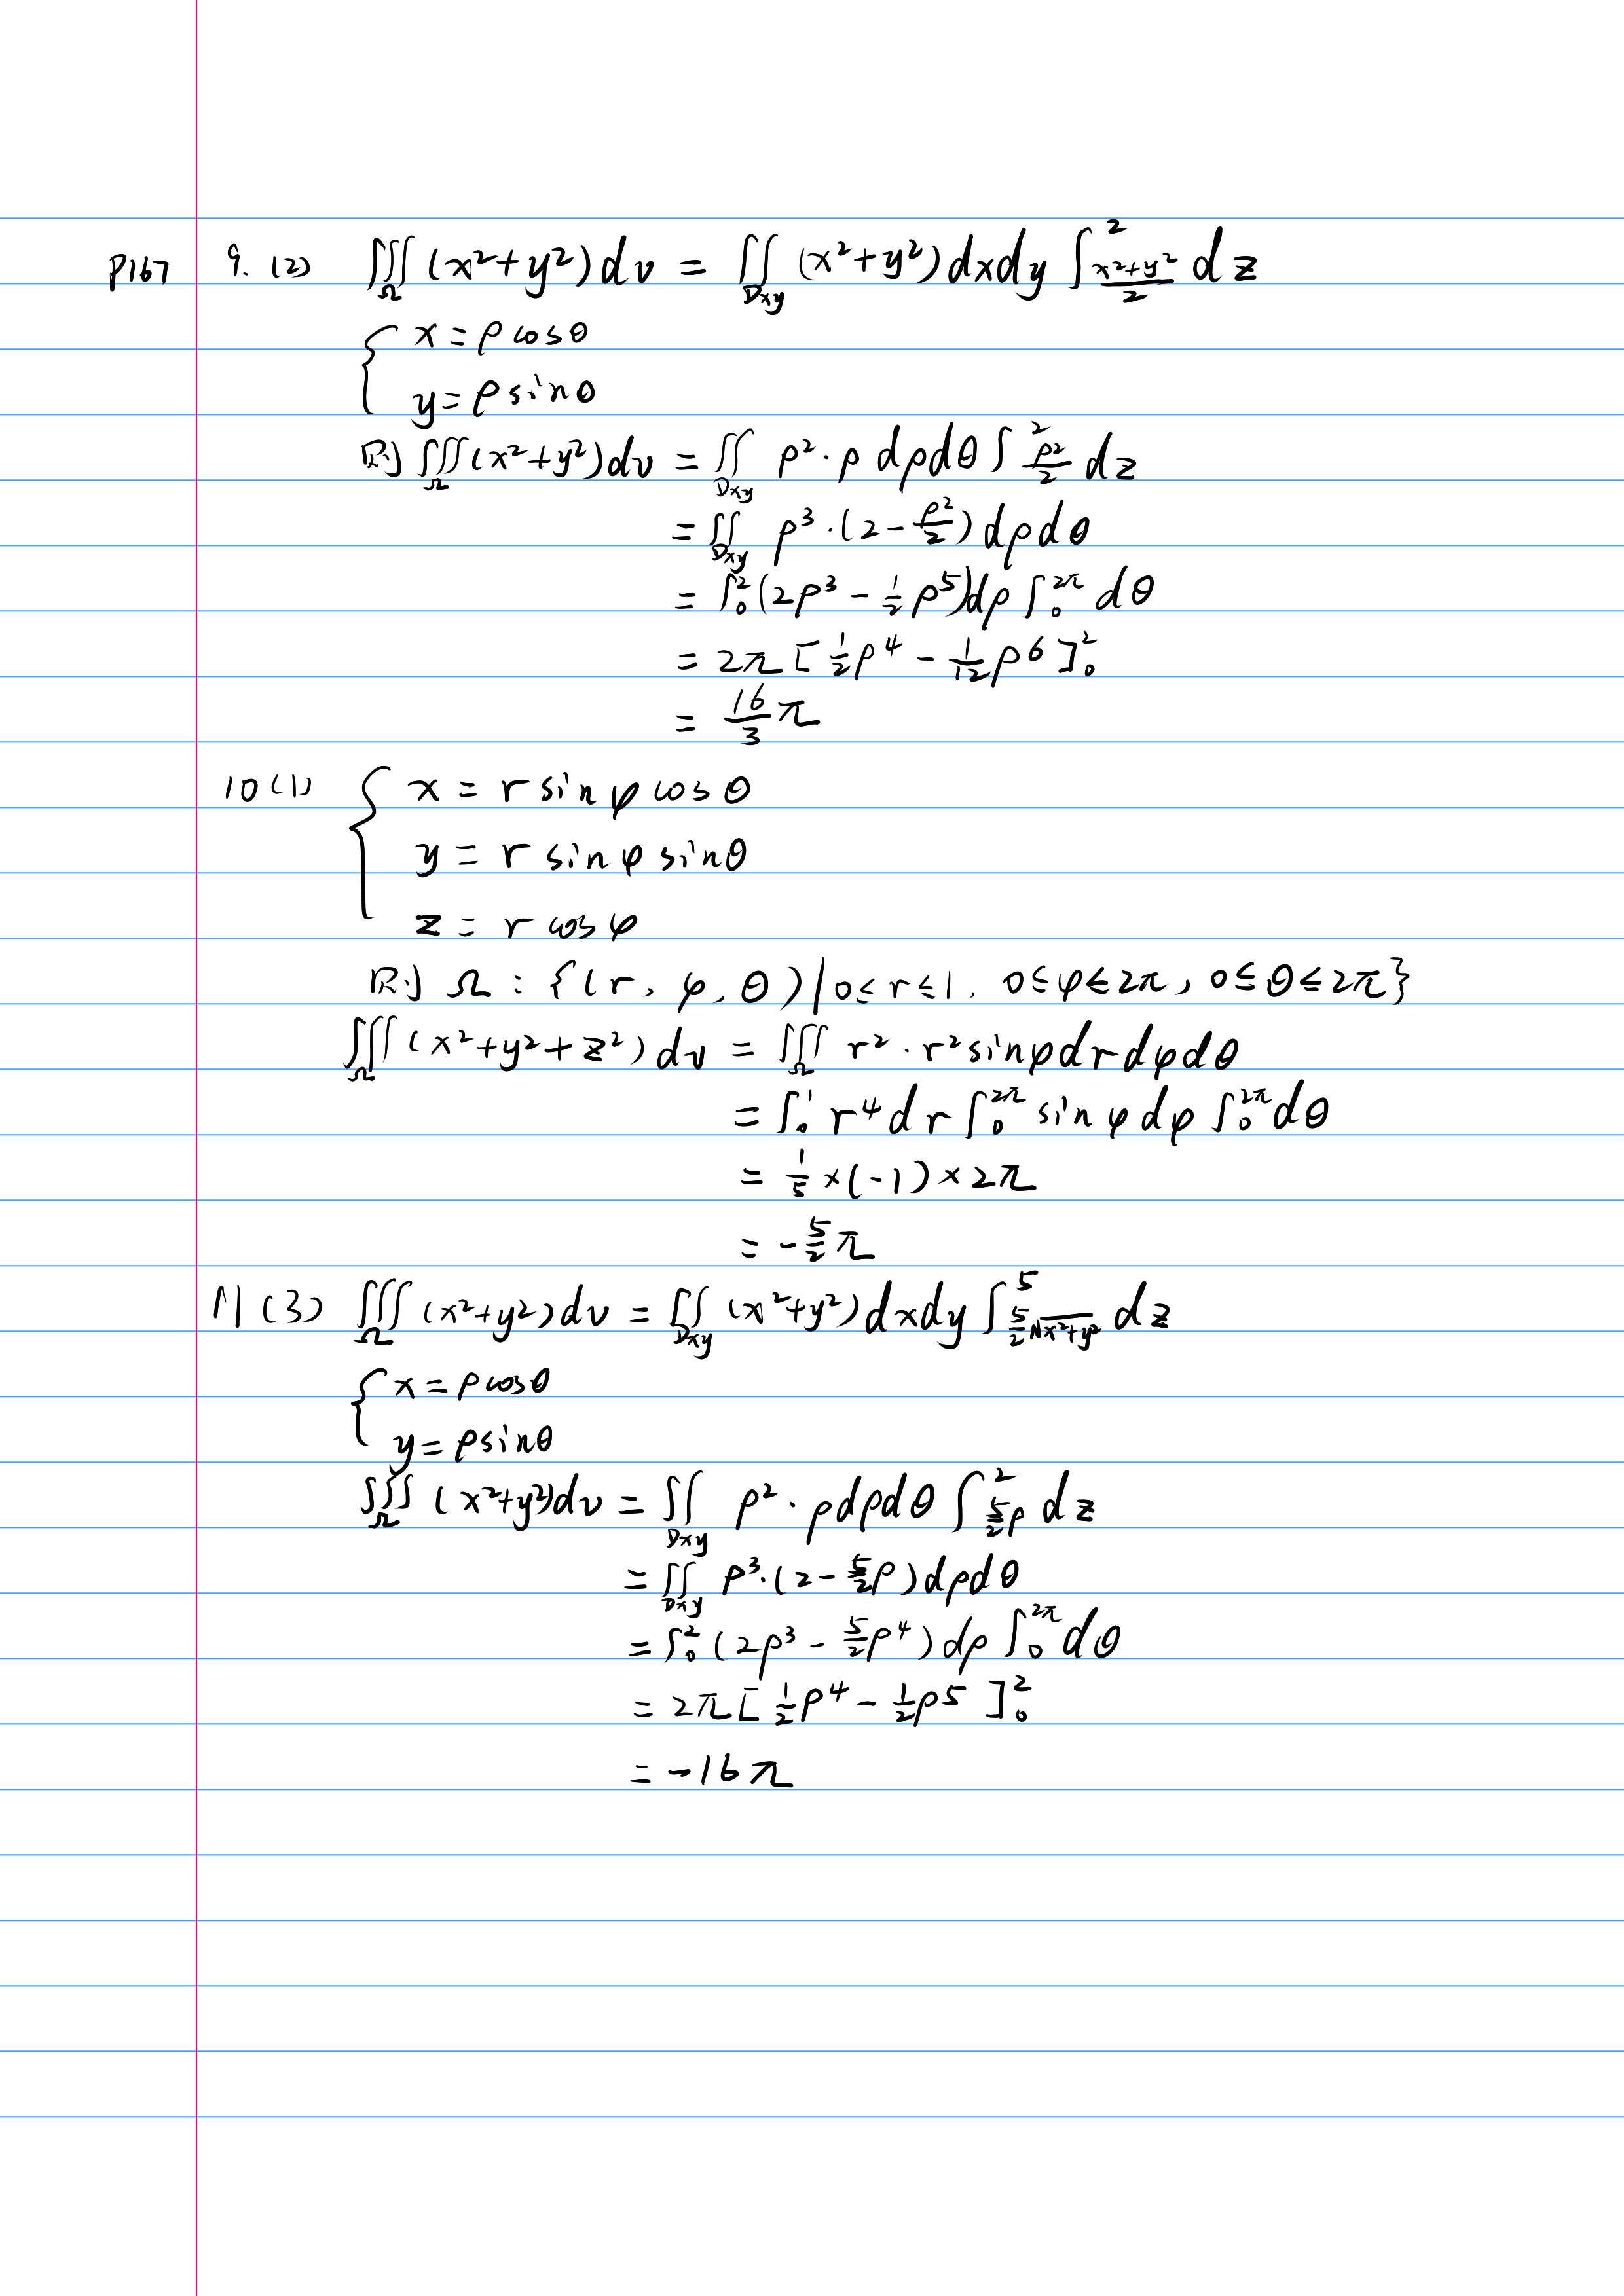 P167 9. (2) ∭_Ω (x²+y²)dv = ∬_Dxy (x²+y²)dxdy ∫_{(x²+y²)/2}^{2} dz
{ x = ρcosθ
y = ρsinθ
则 ∭_Ω (x²+y²)dv = ∬_Dxy ρ²·ρ dρdθ ∫_{ρ²/2}^{2} dz
= ∬_Dxy ρ³·(2-ρ²/2)dρdθ
= ∫_0^2 (2ρ³-1/2ρ⁵)dρ ∫_0^{2π} dθ
= 2π[1/2ρ⁴-1/12ρ⁶]_0^2
= 16/3 π
10 (1) { x = r sinφ cosθ
y = r sinφ sinθ
z = r cosφ
则 Ω : {(r, φ, θ)|0≤r≤1, 0≤φ≤2π, 0≤θ≤2π}
∭_Ω (x²+y²+z²)dv = ∭_Ω r²·r²sinφdrdφdθ
= ∫_0^1 r⁴dr ∫_0^{2π} sinφdφ ∫_0^{2π} dθ
= 1/5×(-1)×2π
= -5/2 π
11 (3) ∭_Ω (x²+y²)dv = ∬_Dxy (x²+y²)dxdy ∫_{5/2 √(x²+y²)}^{5} dz
{ x = ρcosθ
y = ρsinθ
∭_Ω (x²+y²)dv = ∬_Dxy ρ²·ρdρdθ ∫_{5/2 ρ}^{2} dz
= ∬_Dxy ρ³·(2-5/2ρ)dρdθ
= ∫_0^2 (2ρ³-5/2ρ⁴)dρ ∫_0^{2π} dθ
= 2π[1/2ρ⁴-1/2ρ⁵]_0^2
= -16π